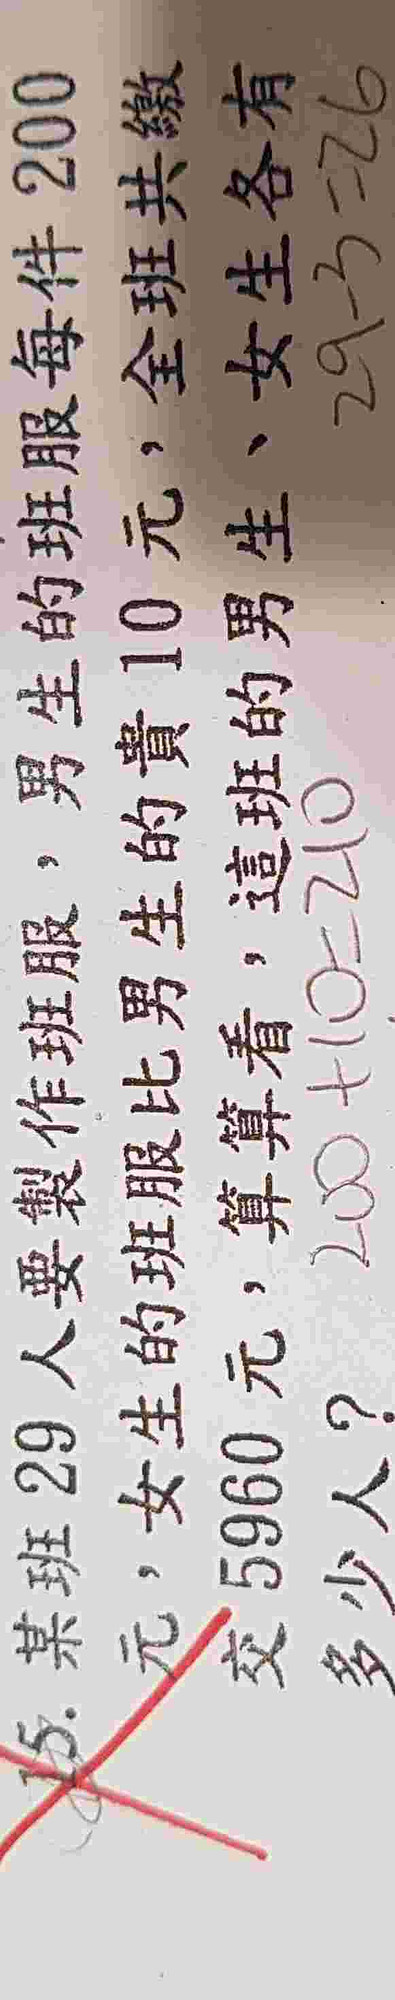 15. 某班 29 人要製作班服，男生的班服每件 200
元，女生的班服比男生的貴 10 元，全班共繳
交 5960 元，算算看，這班的男生、女生各有
多少人？ 200+10=210 29-3=26